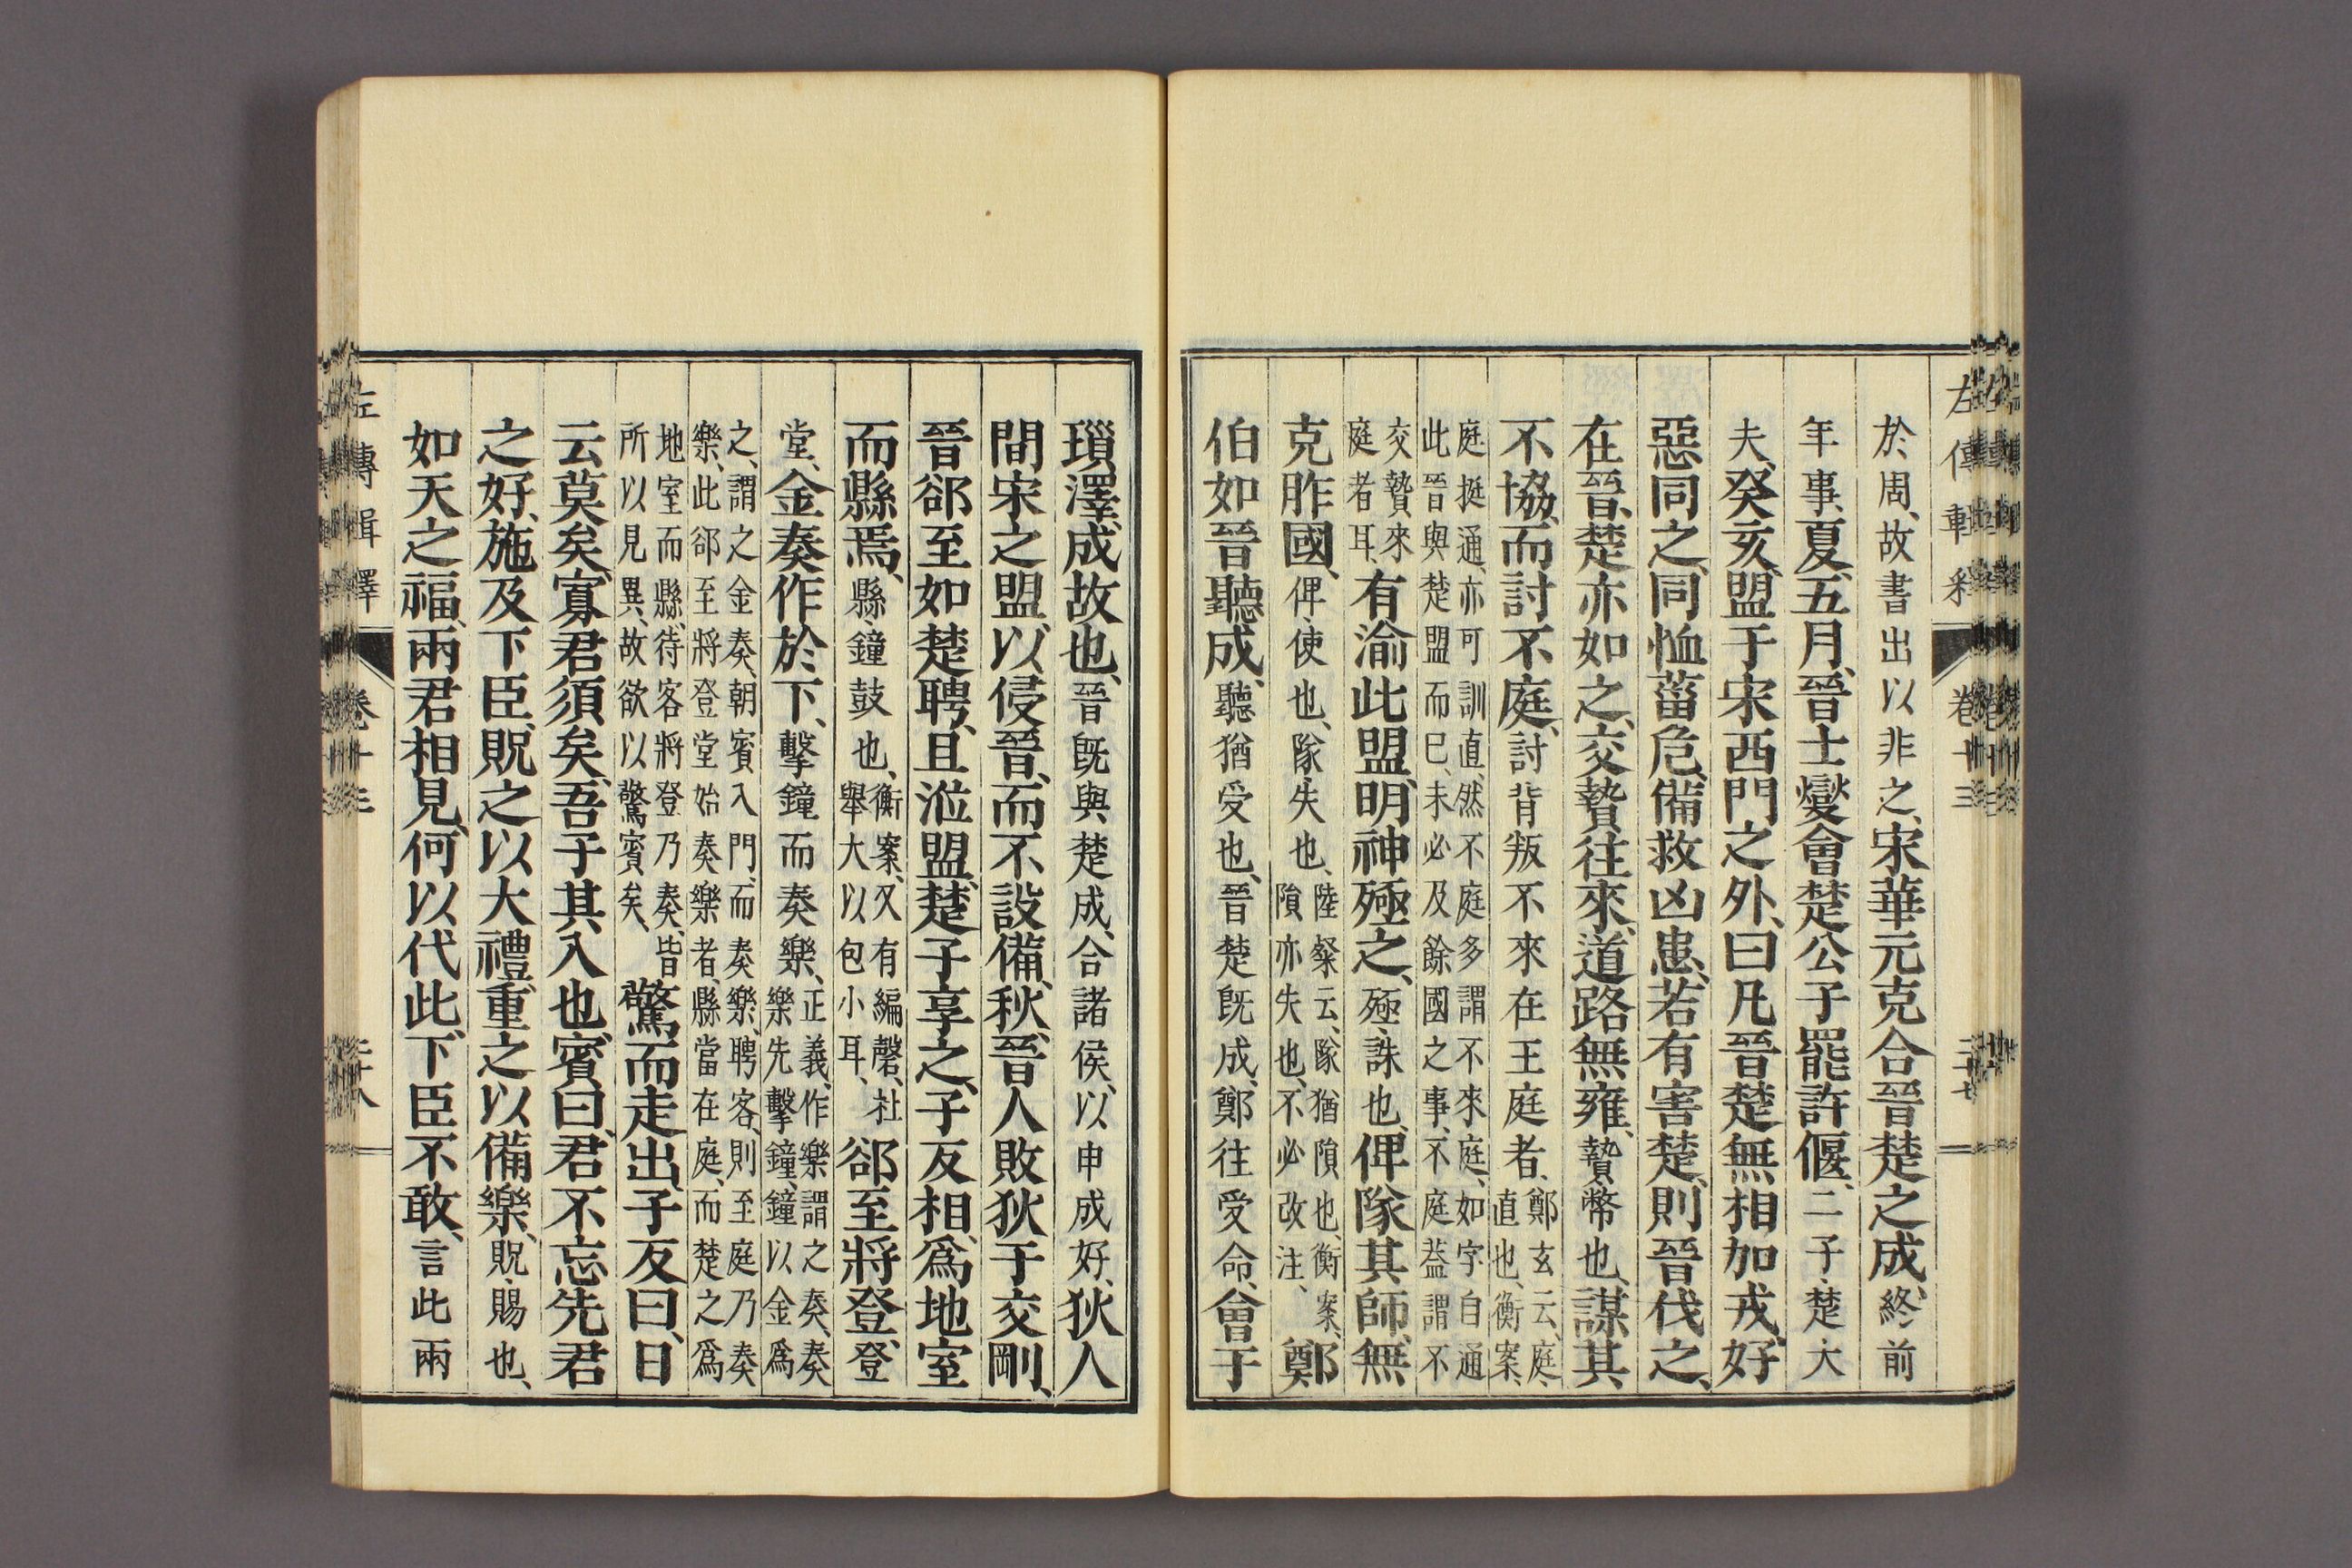 於周、故書出以非之、宋華元克合晉楚之成、終前
年事、夏、五月、晉士燮會楚公子罷許偃、二子、楚大
夫、癸亥、盟于宋西門之外、曰凡晉楚無相加戎、好
惡同之、同恤菑危、備救凶患、若有害楚、則晉伐之、
在晉、楚亦如之、交贄往來、道路無雍、贄、幣也、謀其
不協、而討不庭、討背叛不來在王庭者、鄭玄云、庭、
直也、衡案、
庭挺通、亦可訓直、然不庭多謂不來庭、如字自通
此晉與楚盟而已、未必及餘國之事、不庭葢謂不
交贄來
庭者耳、有渝此盟、明神殛之、殛、誅也、俾隊其師、無
克胙國、俾、使也、隊、失也、陸粲云、隊猶隕也、衡案、
隕亦失也、不必改注、鄭
伯如晉聽成、聽猶受也、晉楚既成、鄭往受命、會于
左傳輯釋 卷十三
瑣澤、成故也、晉既與楚成、合諸侯、以申成好、狄人
間宋之盟、以侵晉、而不設備、秋、晉人敗狄于交剛、
晉郤至如楚聘、且涖盟、楚子享之、子反相、爲地室
而縣焉、縣、鐘鼓也、衡案、又有編磬、社
舉大以包小耳、郤至將登、登
堂、金奏作於下、擊鐘而奏樂、正義、作樂謂之奏、奏
樂先擊鐘、鐘以金爲
之、謂之金奏、朝賓入門、而奏樂、聘客、則至庭乃奏
樂、此郤至將登堂始奏樂者、縣當在庭、而楚之爲
地室而縣、待客將登乃奏、皆
所以見異、故欲以驚賓矣、驚而走出、子反曰、日
云莫矣、寡君須矣、吾子其入也、賓曰、君不忘先君
之好、施及下臣、貺之以大禮、重之以備樂、貺、賜也、
如天之福、兩君相見、何以代此、下臣不敢、言此兩
左傳輯釋 卷十三